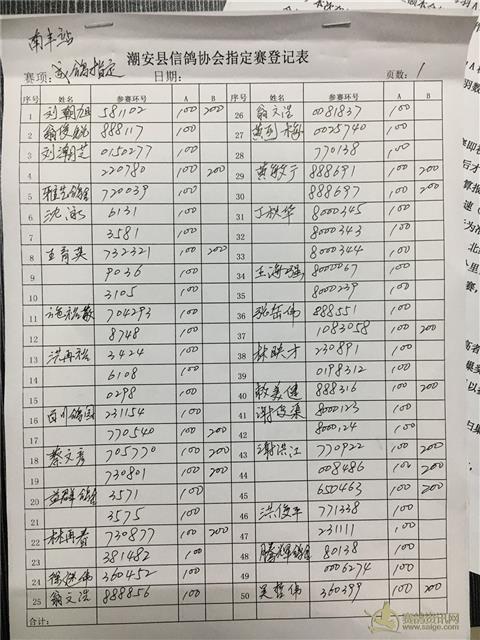 南丰站
潮安县信鸽协会指定赛登记表
赛项: 成鸽指定 日期: 页数: 1
序号 姓名 参赛环号 A B 序号 姓名 参赛环号 A B
1 刘潮旭 581102 100 200 26 翁文浩 0081837 100
2 888117 100 27 0025740 100
3 刘潮芝 0150277 100 28 770138 100
4 220780 100 200 29 黄敏于 888691 100 200
5 720039 100 30 888697 100 200
6 沈泳 6131 100 31 丁秋华 8000345 100
7 3581 100 32 8000343 100
8 王育英 732321 100 200 33 8000344 100
9 9036 100 34 王海强 8000067 100
10 3105 100 35 8000239 100
11 704293 100 36 张岳伟 888551 100
12 8748 100 37 1083058 100 200
13 洪再裕 3424 100 38 林映才 230891 100
14 6108 100 39 0198312 100
15 0298 100 40 888316 100 200
16 231154 100 41 8000123 100
17 770540 100 200 42 8000124 100
18 蔡文秀 705770 100 200 43 谢洪江 770922 100 200
19 730801 100 200 44 008486 100 200
20 益群鸽舍 3571 100 45 650463 100 200
21 3575 100 46 洪俊平 771338 100
22 林再春 730877 100 200 47 231111 100
23 381482 100 48 腾辉鸽舍 80138 100
24 360452 100 49 0006274 100
25 翁文浩 888856 100 50 吴哲伟 360399 100 200
合计:
赛鸽资讯网
www.saige.com